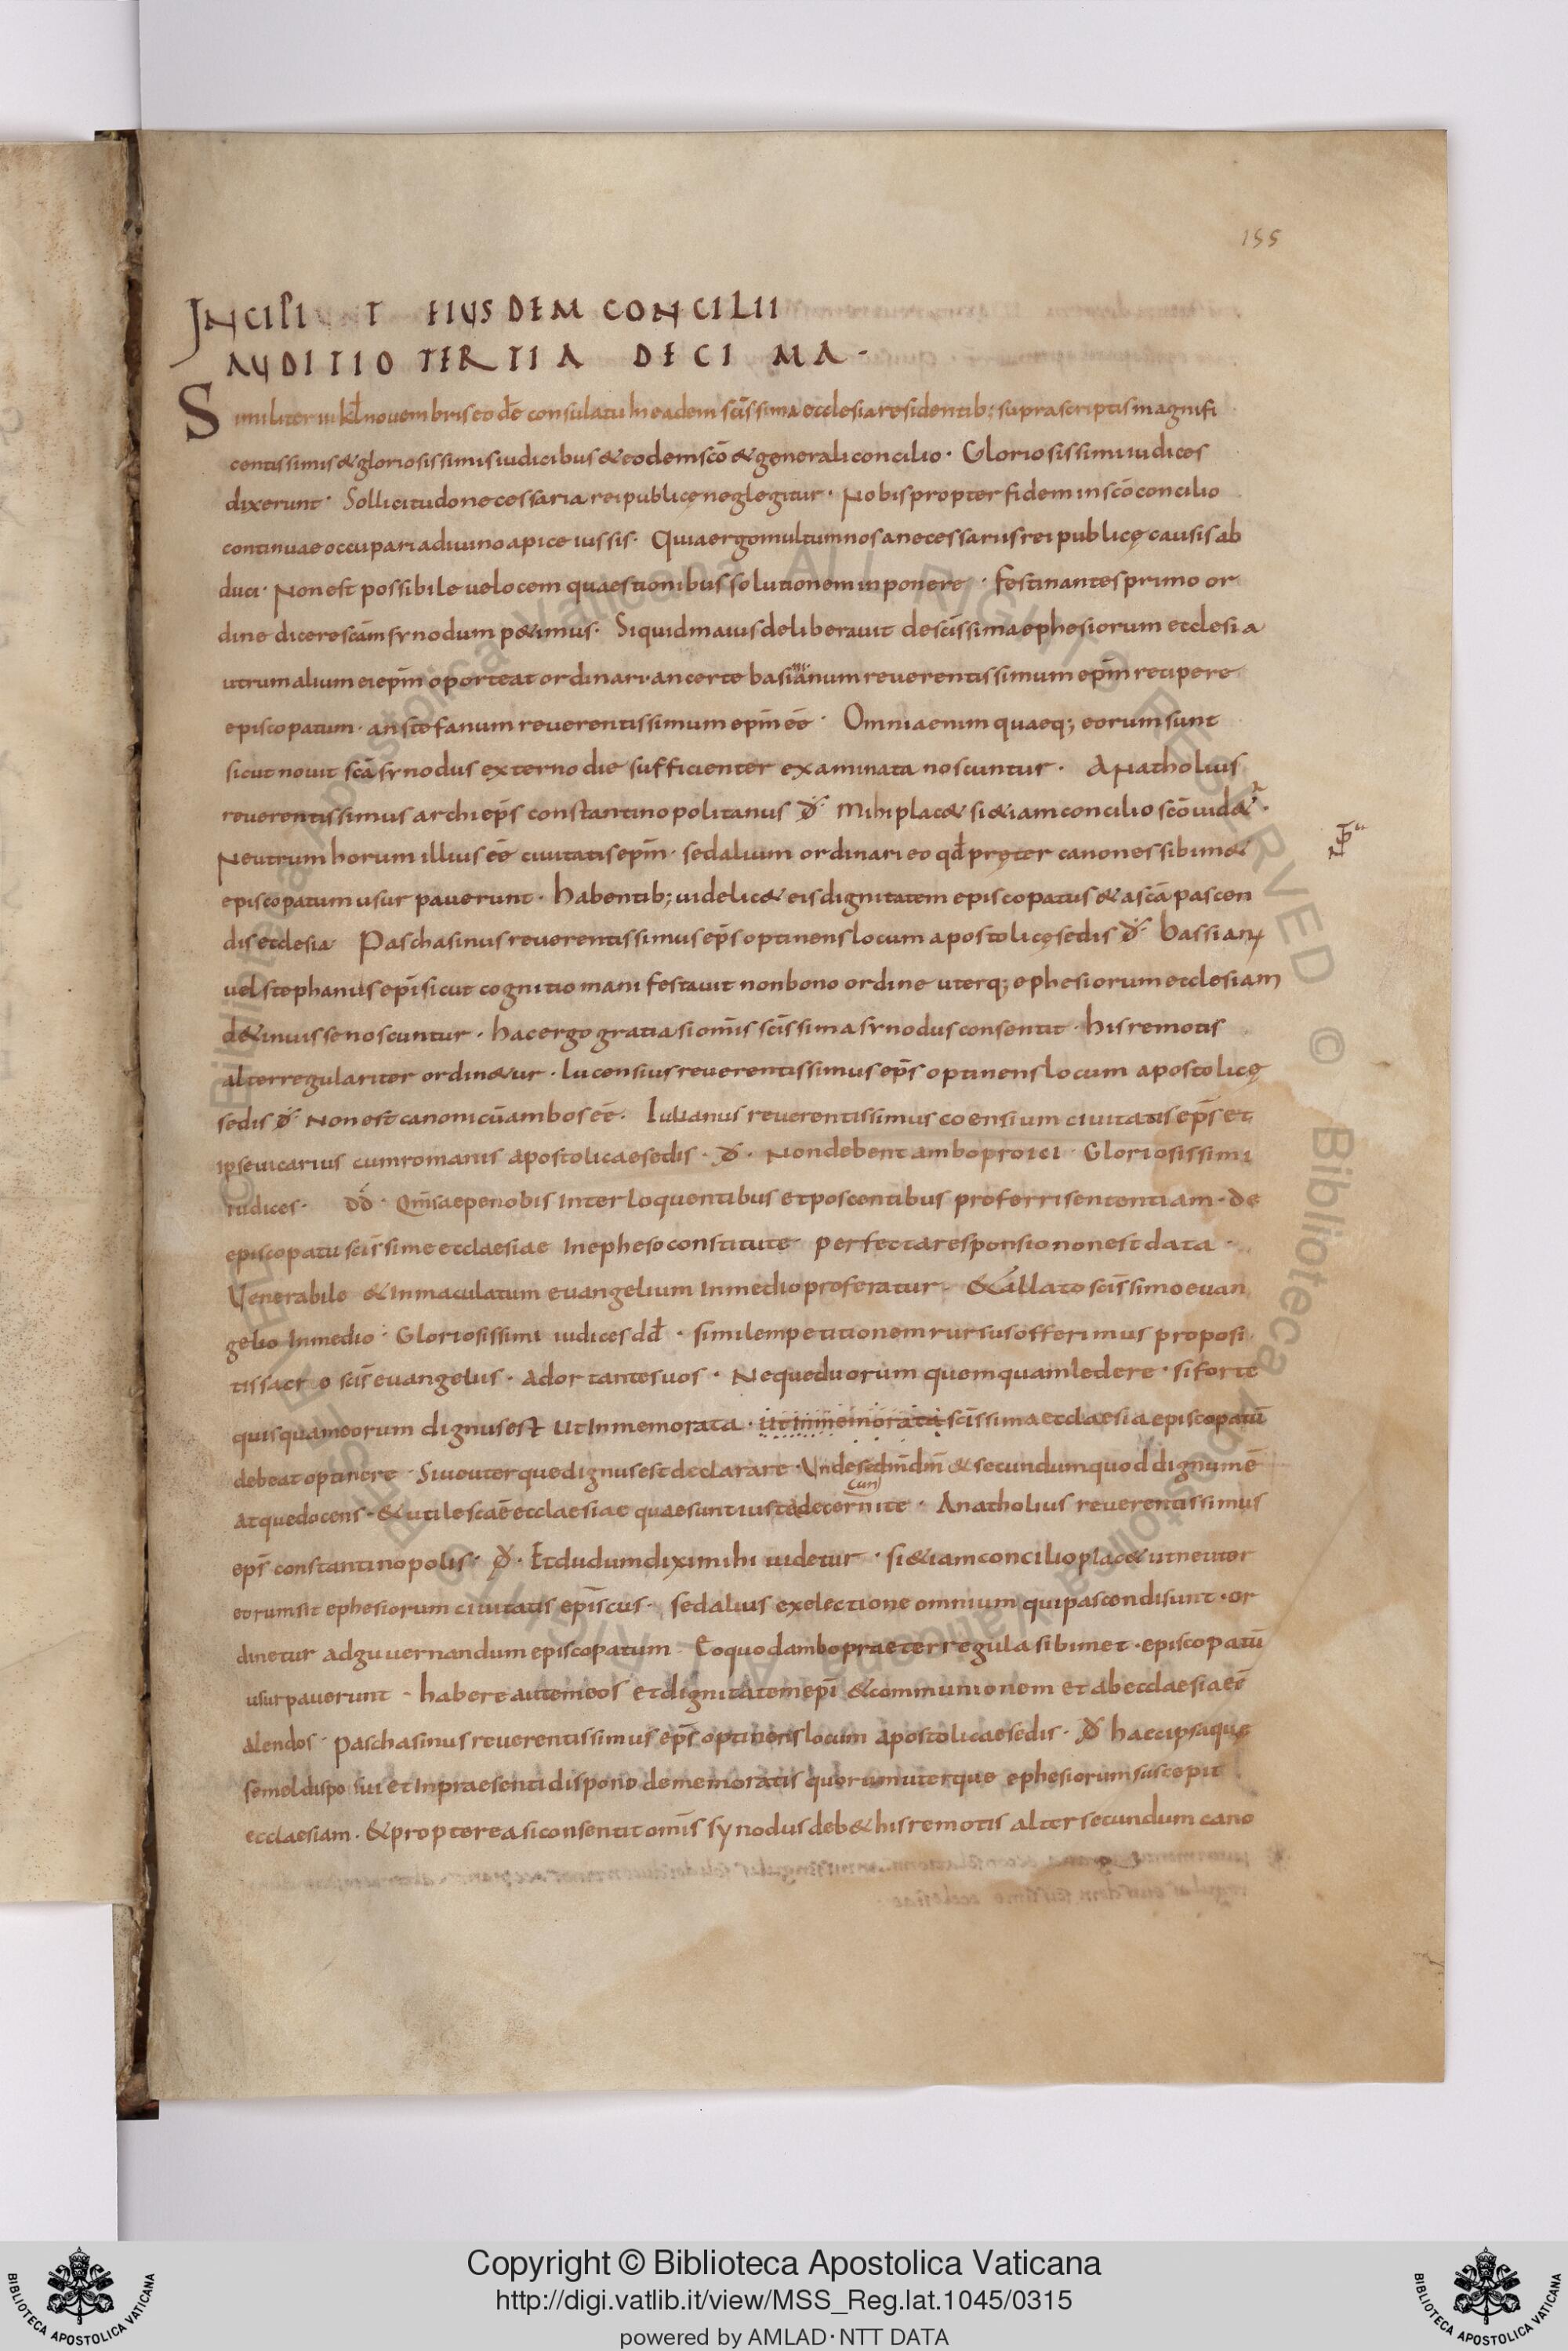 155
INCIPIUNT EIUSDEM CONCILII
AUDITIO TERTIA DECIMA.
Similiter iii kl̄ novembris eo de consulatu In eadem sc̄issima ecclesia residentib; suprascriptis magnifi
centissimis & gloriosissimis iudicibus & eodem sc̄o & generali concilio. Gloriosissimi iudices
dixerunt. Sollicitudo necessaria rei publicę neglegitur. Nobis propter fidem in sc̄o concilio
continuae occupari a divino apice iussis. Quia ergo multum nos a necessariis rei publicę causis ab
duci. Non est possibile velocem quaestionibus solutionem inponere. festinantes primo or
dine dicere sc̄am synodum p&imus. Si quid maius deliberavit de sc̄issima ephesiorum ecclesia
utrum alium ei ep̄m oporteat ordinari. an certe basianum reverentissimum ep̄m recipere
episcopatum. an stefanum reverentissimum ep̄m eē. Omnia enim quaeq; eorum sunt
sicut novit sc̄a synodus externo die sufficienter examinata noscuntur. Anatholius
reverentissimus archiep̄s constantinopolitanus đ. Mihi plac& si &iam concilio sc̄o vid&ᷣ.
Neutrum horum illius eē civitatis ep̄m. sed alium ordinari eo qđ pręter canones sibim&
episcopatum usurpaverunt. habentib; videlic& eis dignitatem episcopatus & a sc̄a pascen
dis ecclesia. Paschasinus reverentissimus ep̄s optinens locum apostolicę sedis đ. bassianꝰ
vel stephanus ep̄i sicut cognitio manifestavit non bono ordine uterq; ephesiorum ecclesiam
d&inuisse noscuntur. hac ergo gratia si om̄is sc̄issima synodus consentit. his remotis
alter regulariter ordin&ur. lucensius reverentissimus ep̄s optinens locum apostolicę
sedis đ. Non est canonicū ambos eē. Iulianus reverentissimus coensium civitatis ep̄s et
ipse vicarius cum romanis apostolicae sedis. đ. Non debent ambo proici. Gloriosissimi
iudices. dd̄. Qm̄ saepe nobis Interloquentibus et poscentibus proferri sententiam. de
episcopatu sc̄issime ecclaesiae In epheso constitute perfecta responsio non est data.
Venerabile & Inmaculatum evangelium In medio proferatur. & allato sc̄issimo evan
gelio In medio. Gloriosissimi iudices dđ. similem petitionem rursus offerimus proposi
tis sacro sc̄is evangeliis. adortantes vos. Neque duorum quemquam ledere. si forte
quisquam eorum dignus est ut Inmemorata. ut Inmemorata sc̄issima ecclaesia episcopatū
debeat optinere. Sive uterque dignus est declarare. Unde sed̄m dm̄ & secundum quod dignum ē
atque docens. & utile sc̄ae ecclaesiae quae sunt iuste decernite. Anatholius reverentissimus
ep̄s constantinopolis. đ. Et dudum dixi mihi videtur. si &iam concilio plac& ut neuter
eorum sit ephesiorum civitatis ep̄iscus. sed alius ex electione omnium qui pascendi sunt. or
dinetur ad guvernandum episcopatum. Eo quod ambo praeter regula sibimet. episcopatū
usurpaverunt. habere autem eos et dignitatem ep̄i & communionem et ab ecclaesia eē
alendos. paschasinus reverentissimus ep̄s optinens locum apostolicae sedis. đ haec ipsa que
semel disposui et In praesenti dispono de memoratis quorum uterque ephesiorum suscepit
ecclaesiam. & propterea si consentit om̄is synodus deb& his remotis alter secundum cano
Copyright © Biblioteca Apostolica Vaticana
http://digi.vatlib.it/view/MSS_Reg.lat.1045/0315
powered by AMLAD·NTT DATA
BIBLIOTECA APOSTOLICA VATICANA
BIBLIOTECA APOSTOLICA VATICANA